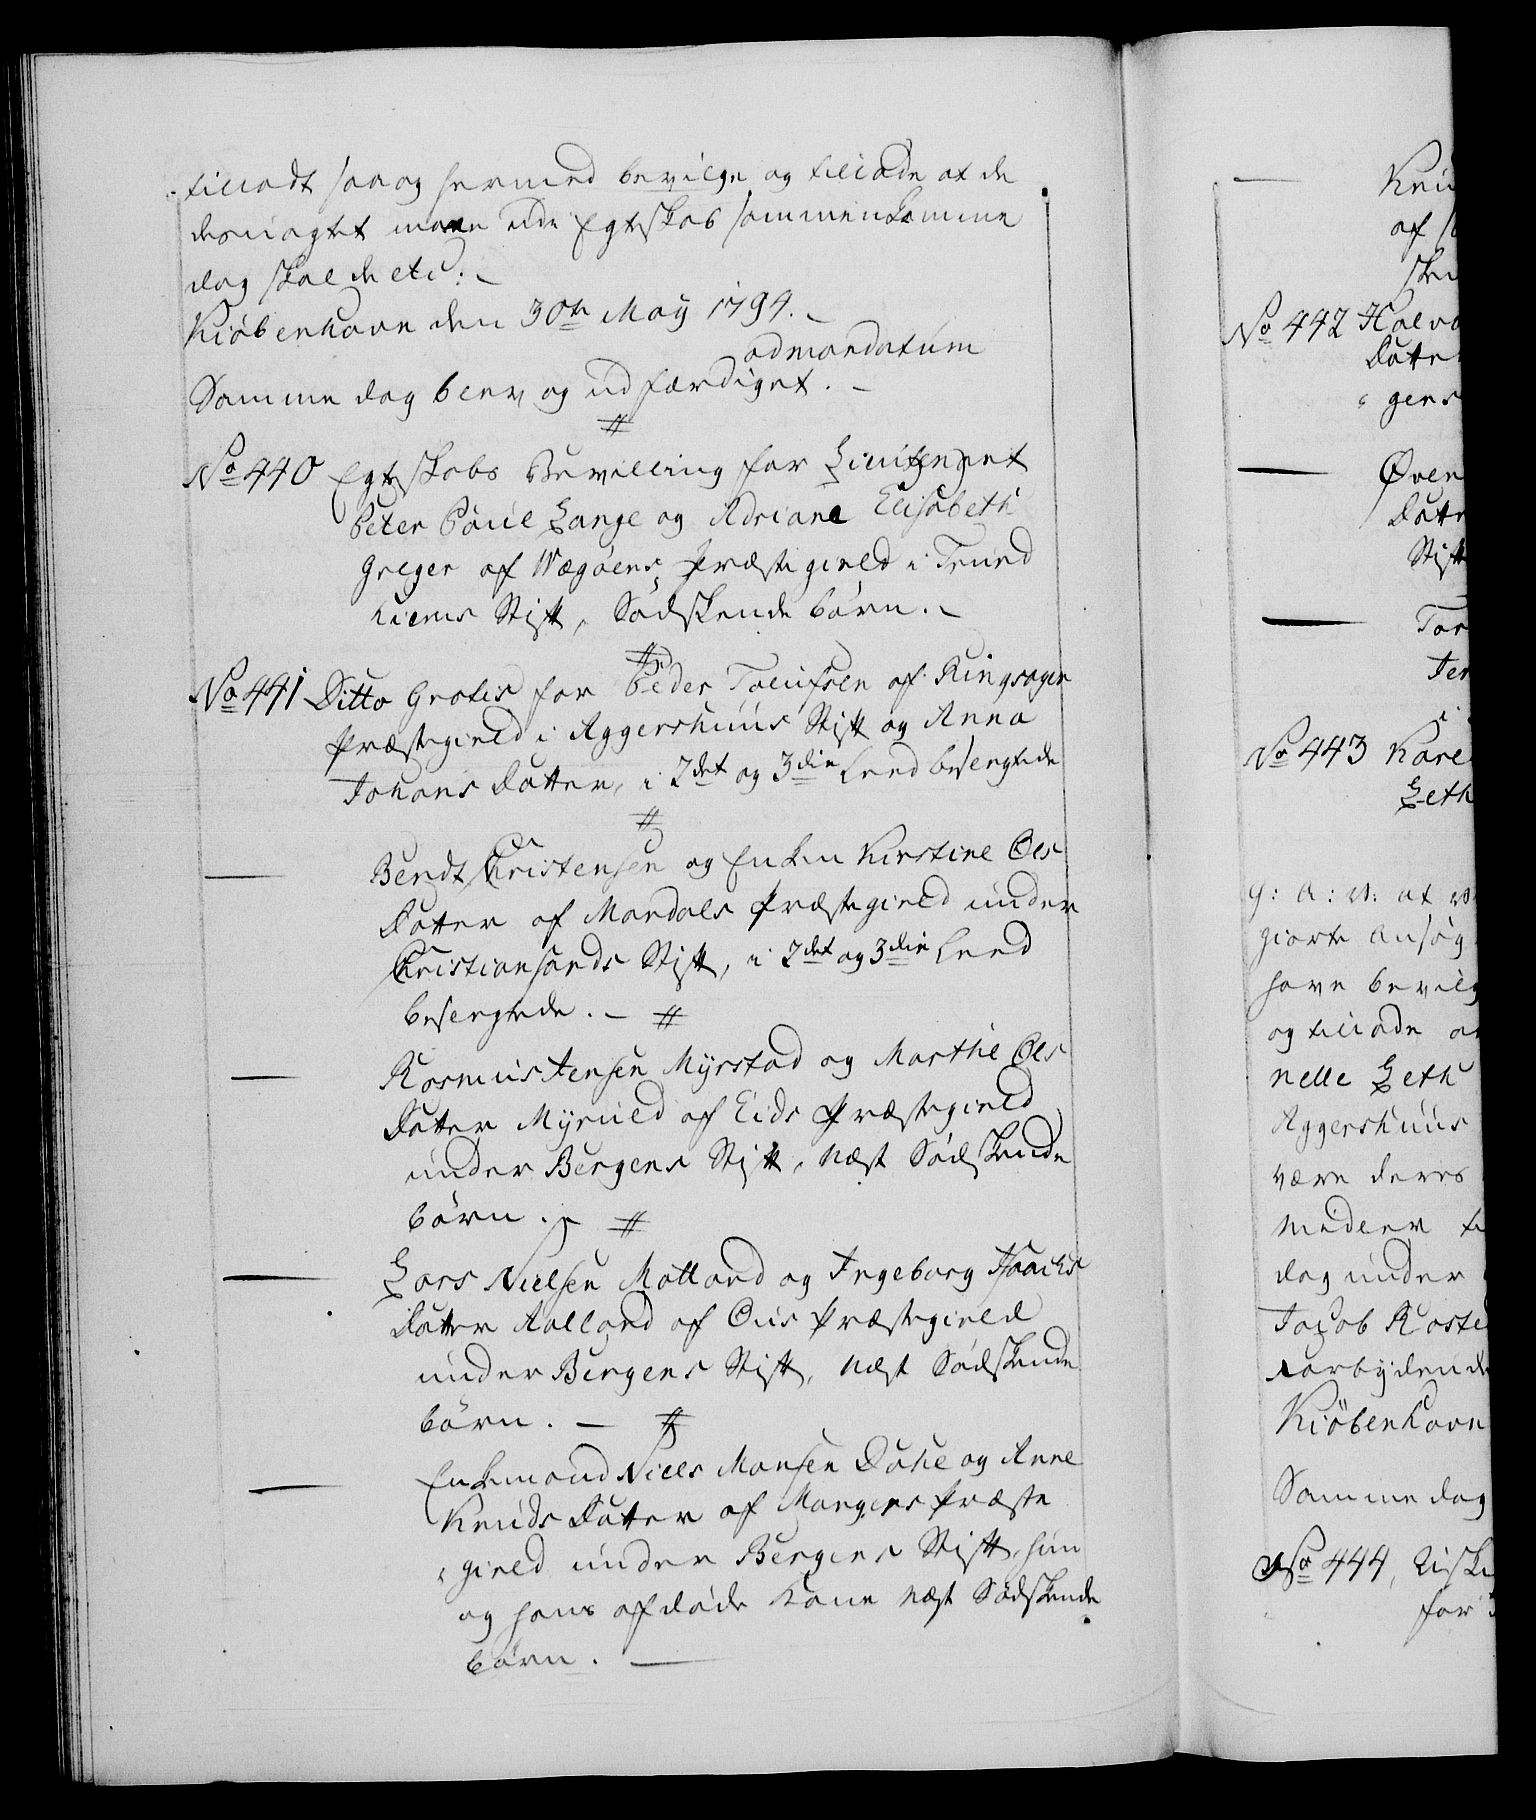 tilladt saa og hermed bevilge og tillade at de
desuagtet maae udi Egteskab sammenkomme
dog skal de etc: —
Kiöbenhavn den 30te May 1794. —
ad mandatum
Samme dag blev og udfærdiget. —
No 440 Egteskabs Bevilling for Lieutenant
Peter Poul Lange og Adriane Elisabeth
Greger af Wægöens Præstegield i Trund
hiems Stift, Södskende börn. —
No 441 Ditto Gratis for Peder Toeufsen af Ringsager
Præstegield i Aggershuus Stift og Anna
Johans Datter, i 2det og 3die Leed besvogrede
Bendt Christensen og Enken Kirstine Ols
Datter af Mandals Præstegield under
Christiansands Stift, i 2det og 3die Leed
besvogrede. —
Rasmus Jensen Myrstad og Marthe Ols
Datter Myruld af Eids Præstegield
under Bergens Stift, Næst Södskende
börn. —
Lars Nielsen Malland og Ingeborg Isaachs
Datter Aalland af Ous Præstegield
under Bergens Stift, Næst Södskende
börn. —
Enkemand Niels Monsen Dahle og Anne
Knuds Datter af Mangers Præste
gield under Bergens Stift, hun
og hans afdöde Kone Næst Södskende
börn. —
af
No 442 Halvo
Datte
gens
Øven
Datt
Stift
Tor
Jen
No 443 Kare
Leth
G: A: V: at v
giorte Ansög
have bevilg
og tillade at
nelle Leth
Aggershuus
være deres
Midler
dog under
Jacob Koste
forbydende
Kiöbenhavn
Samme dag
No 444,
for